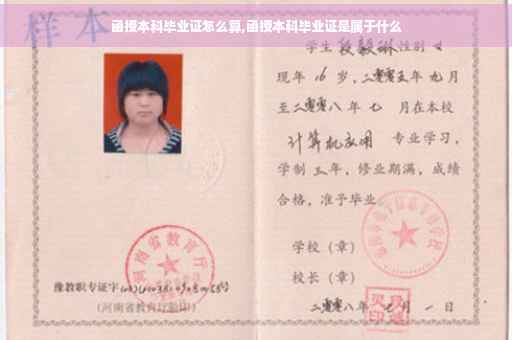 函授本科毕业证怎么算,函授本科毕业证是属于什么
样本
学生段毅琳性别女
现年16岁,二零零五年九月
至二零零八年七月在本校
计算机应用 专业学习,
学制三年,修业期满,成绩
合格,准予毕业
学校(章)
校长(章)
二零零八年 月一日
河南省教育厅
豫教职专证字
(河南省教育厅验印)